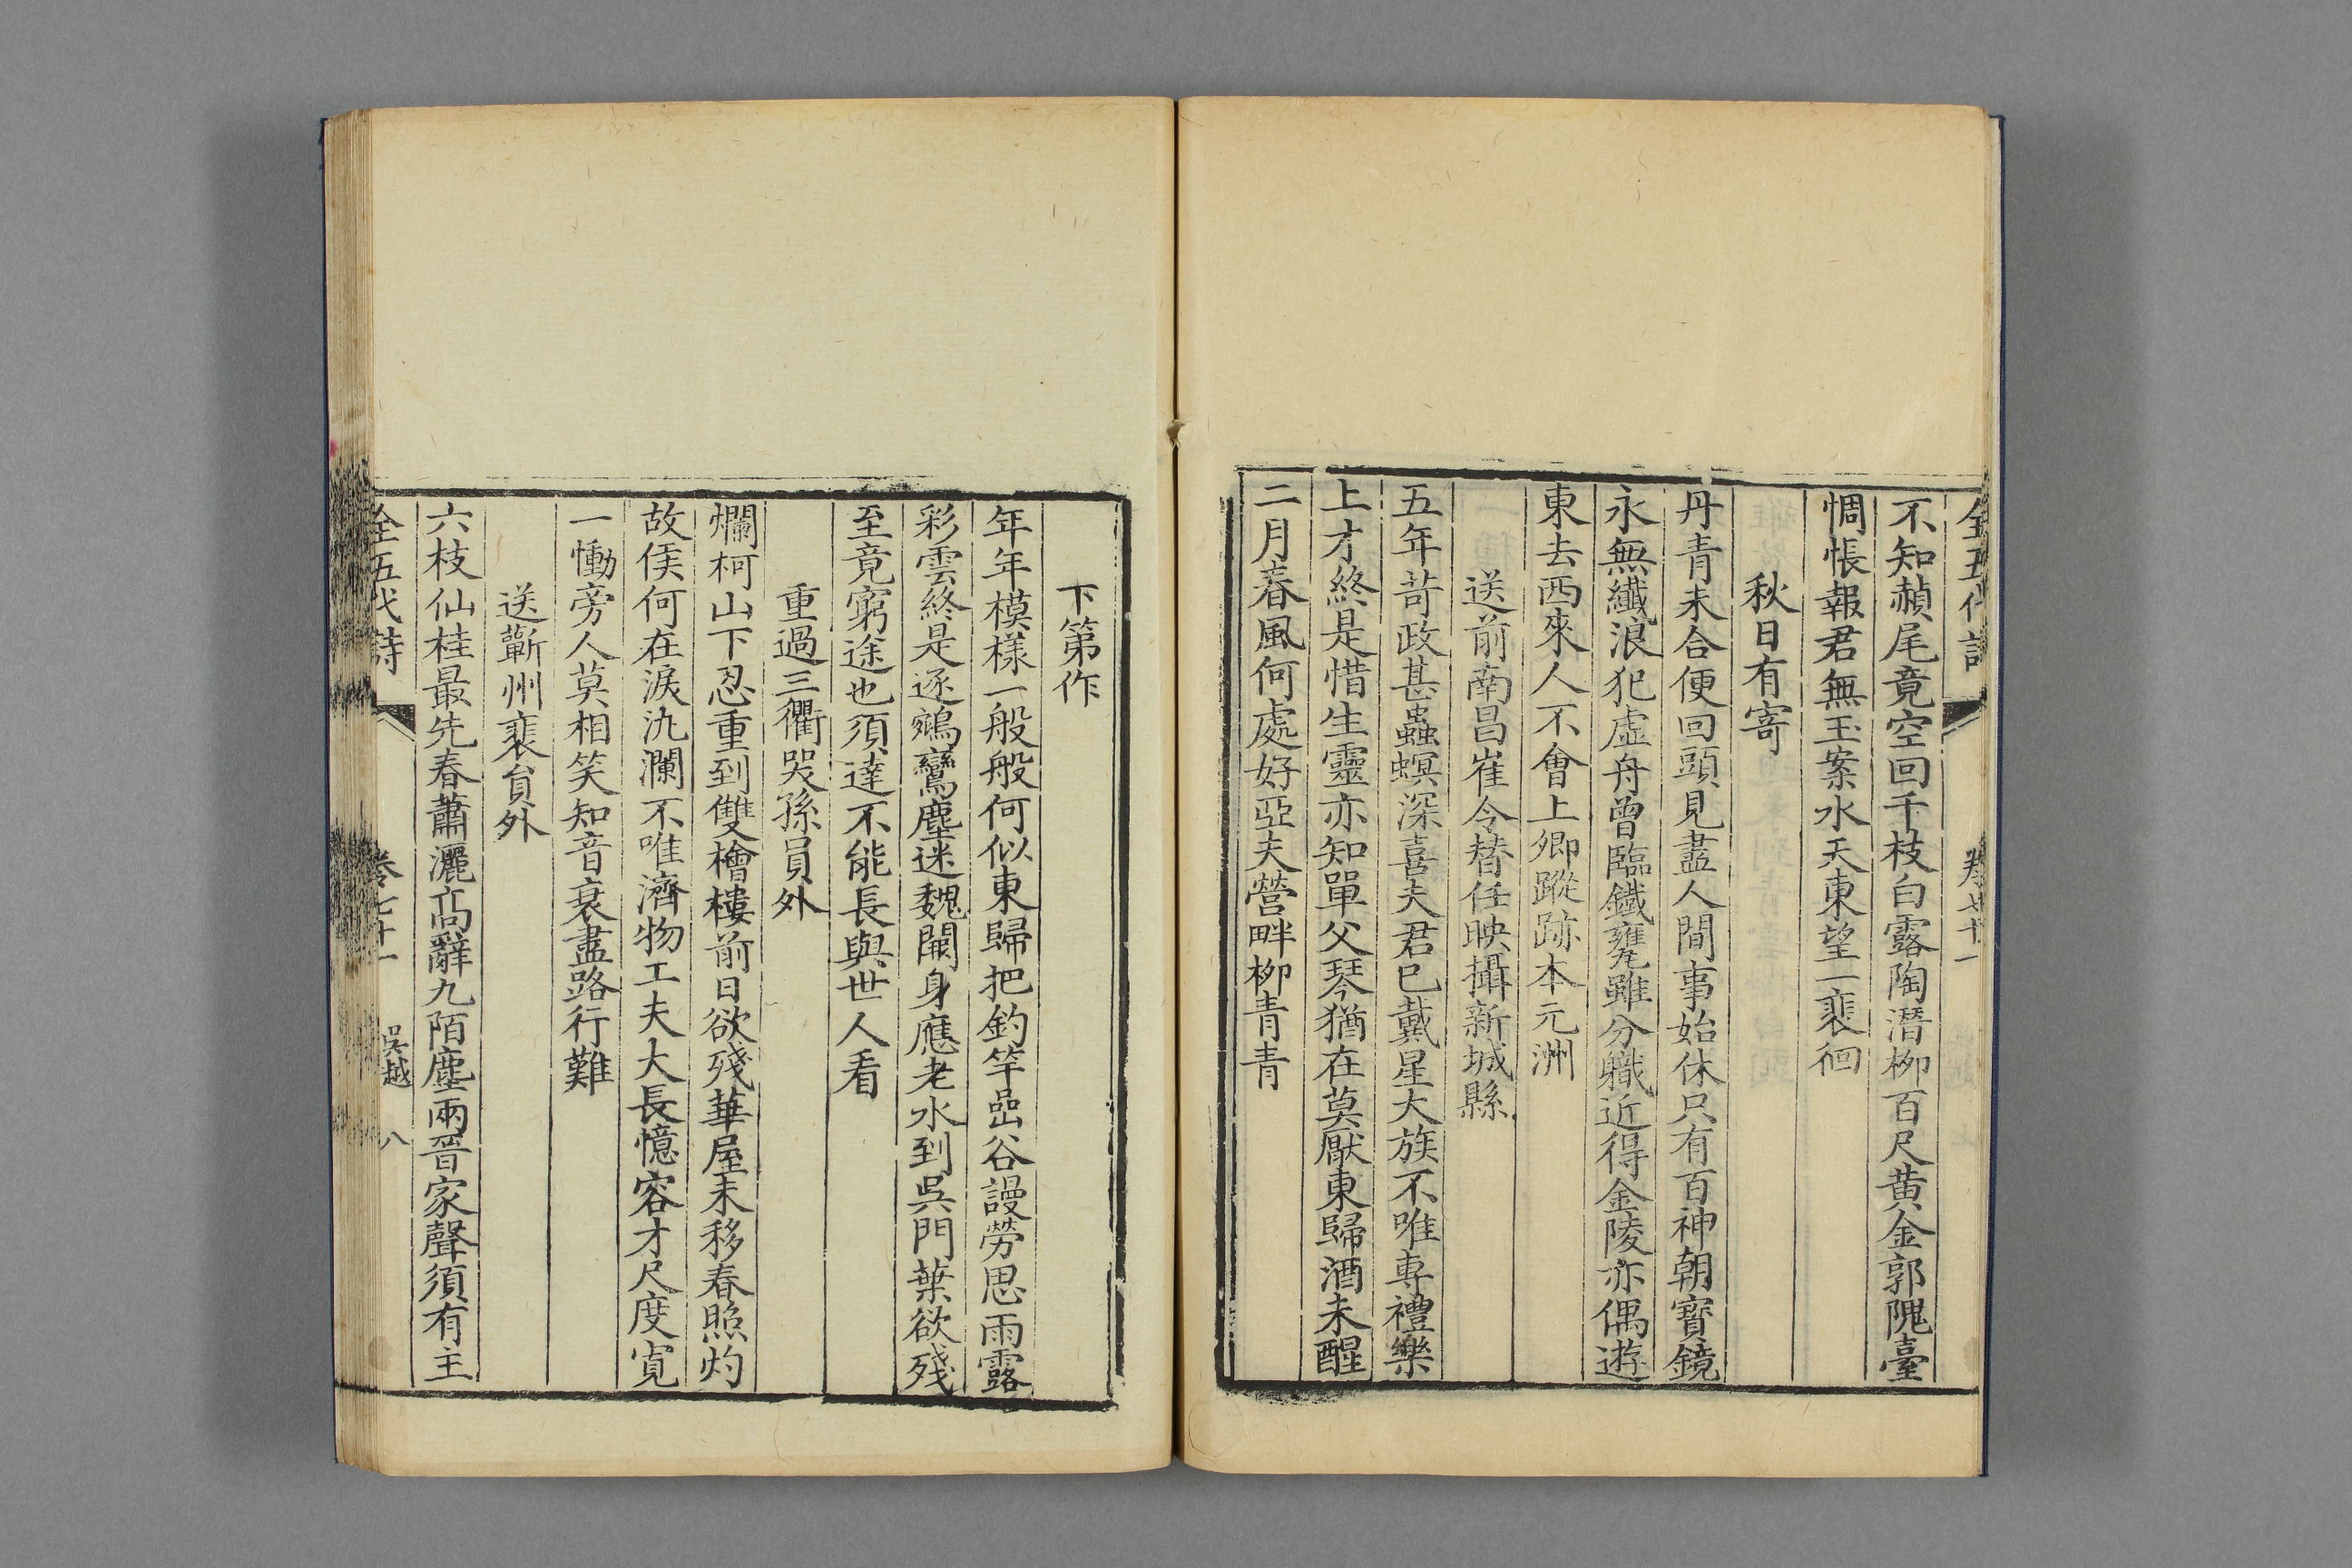 全五代詩 卷七十一
不知赬尾竟空回千枝白露陶潛柳百尺黄金郭隗臺
惆悵報君無玉案水天東望一裴徊
秋日有寄
丹青未合便回頭見盡人間事始休只有百神朝寶鏡
永無纖浪犯虛舟曾臨鐵甕雖分職近得金陵亦偶遊
東去西來人不會上卿蹤跡本元洲
送前南昌崔令替任映攝新城縣
五年苛政甚蟲螟深喜夫君已戴星大族不唯専禮樂
上才終是惜生靈亦知單父琴猶在莫厭東歸酒未醒
二月春風何處好亞夫營畔柳青青
下第作
年年模樣一般般何似東歸把釣竿喦谷謾勞思雨露
彩雲終是逐鵷鸞塵迷魏闕身應老水到吳門葉欲殘
至竟窮途也須達不能長與世人看
重過三衢哭孫員外
爛柯山下忍重到雙檜樓前日欲殘華屋未移春照灼
故侯何在淚汍瀾不唯濟物工夫大長憶容才尺度寬
一慟旁人莫相笑知音衰盡路行難
送蘄州裴員外
六枝仙桂最先春蕭灑高辭九陌塵兩晉家聲須有主
全五代詩 卷七十一 吳越 八